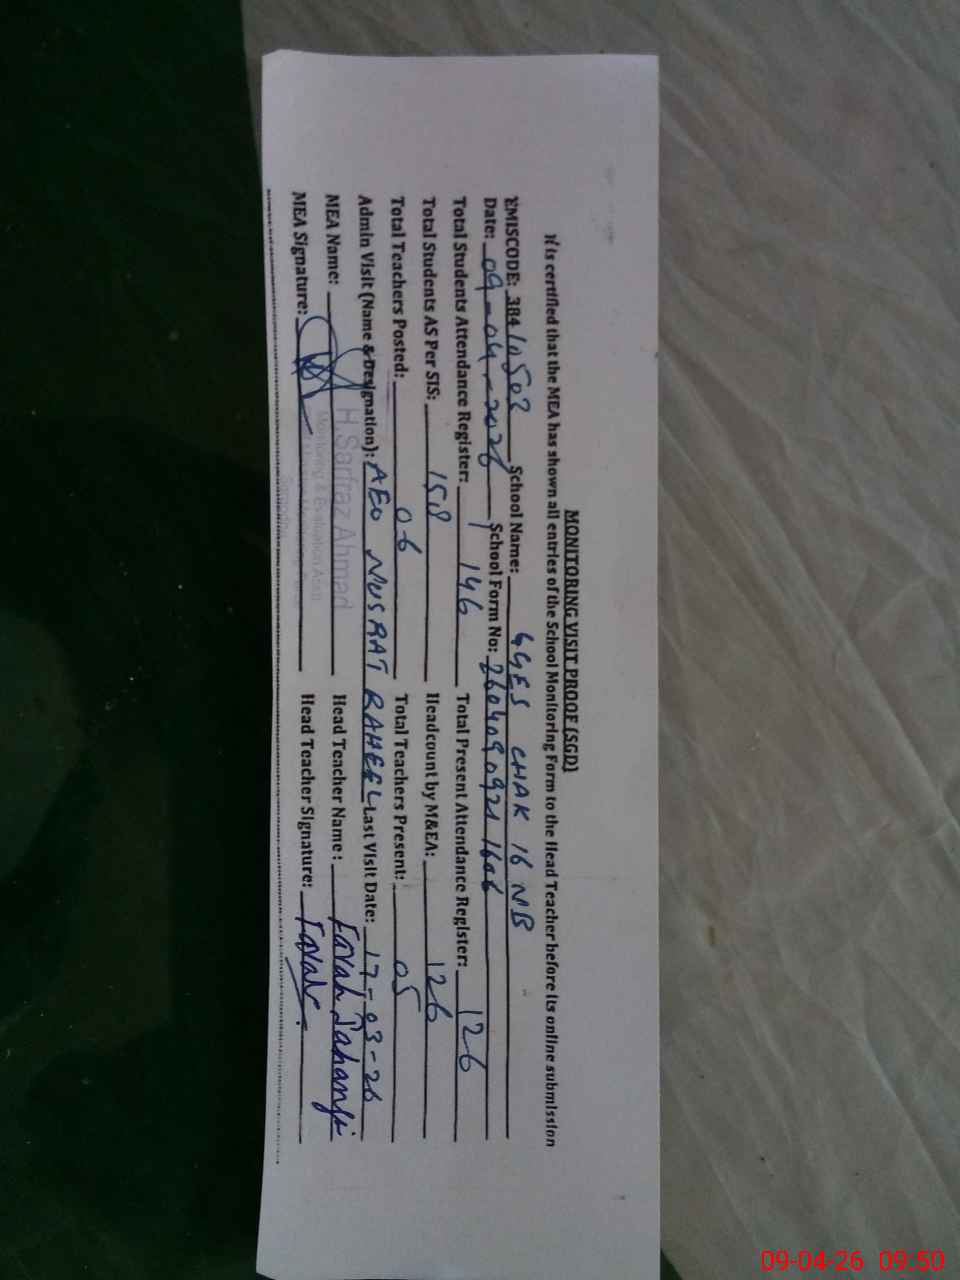 MONITORING VISIT PROOF (SGD)
It is certified that the MEA has shown all entries of the School Monitoring Form to the Head Teacher before its online submission
EMISCODE: 38410502 School Name: GGES CHAK 16 NB
Date: 09-04-2026 School Form No: 2604090921 1606
Total Students Attendance Register: 146 Total Present Attendance Register: 126
Total Students AS Per SIS: 158 Headcount by M&EA: 126
Total Teachers Posted: 06 Total Teachers Present: 05
Admin Visit (Name & Designation): AEO NUSRAT RAHEEL Last Visit Date: 17-03-26
MEA Name: H.Sarfraz Ahmad Head Teacher Name: Farah Jahangir
Monitoring & Evaluation Asstt
MEA Signature: Head Teacher Signature: Farah
Sargodha
09-04-26 09:50